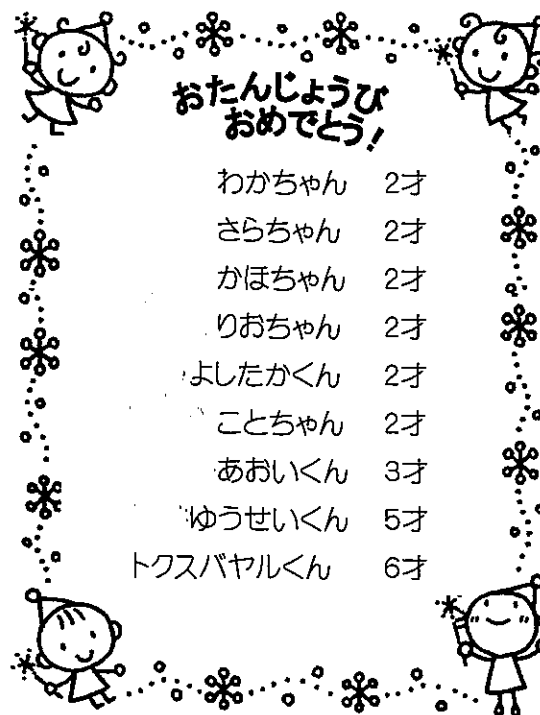 おたんじょうび
おめでとう！
わかちゃん　2才
さらちゃん　2才
かほちゃん　2才
りおちゃん　2才
よしたかくん　2才
ことちゃん　2才
あおいくん　3才
ゆうせいくん　5才
トクスバヤルくん　6才